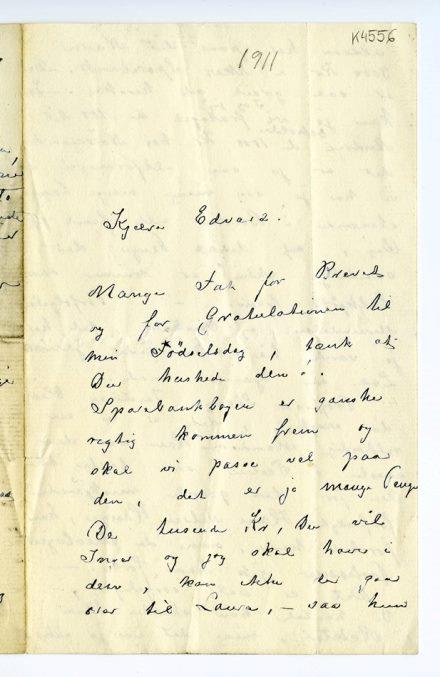 K4556
1911
Kjære Edvard.
Mange Tak for Brevet
og for Gratulationen til
min Fødselsdag, tænk at
Du huskede den!
Sparebankbogen er ganske
rigtig kommen frem og
skal vi passe vel paa
den, det er jo mange Penge
De tusende Kr, Du vil
Inger og jeg skal have i
dem, kan ikke de gaa
over til Laura, – saa hun